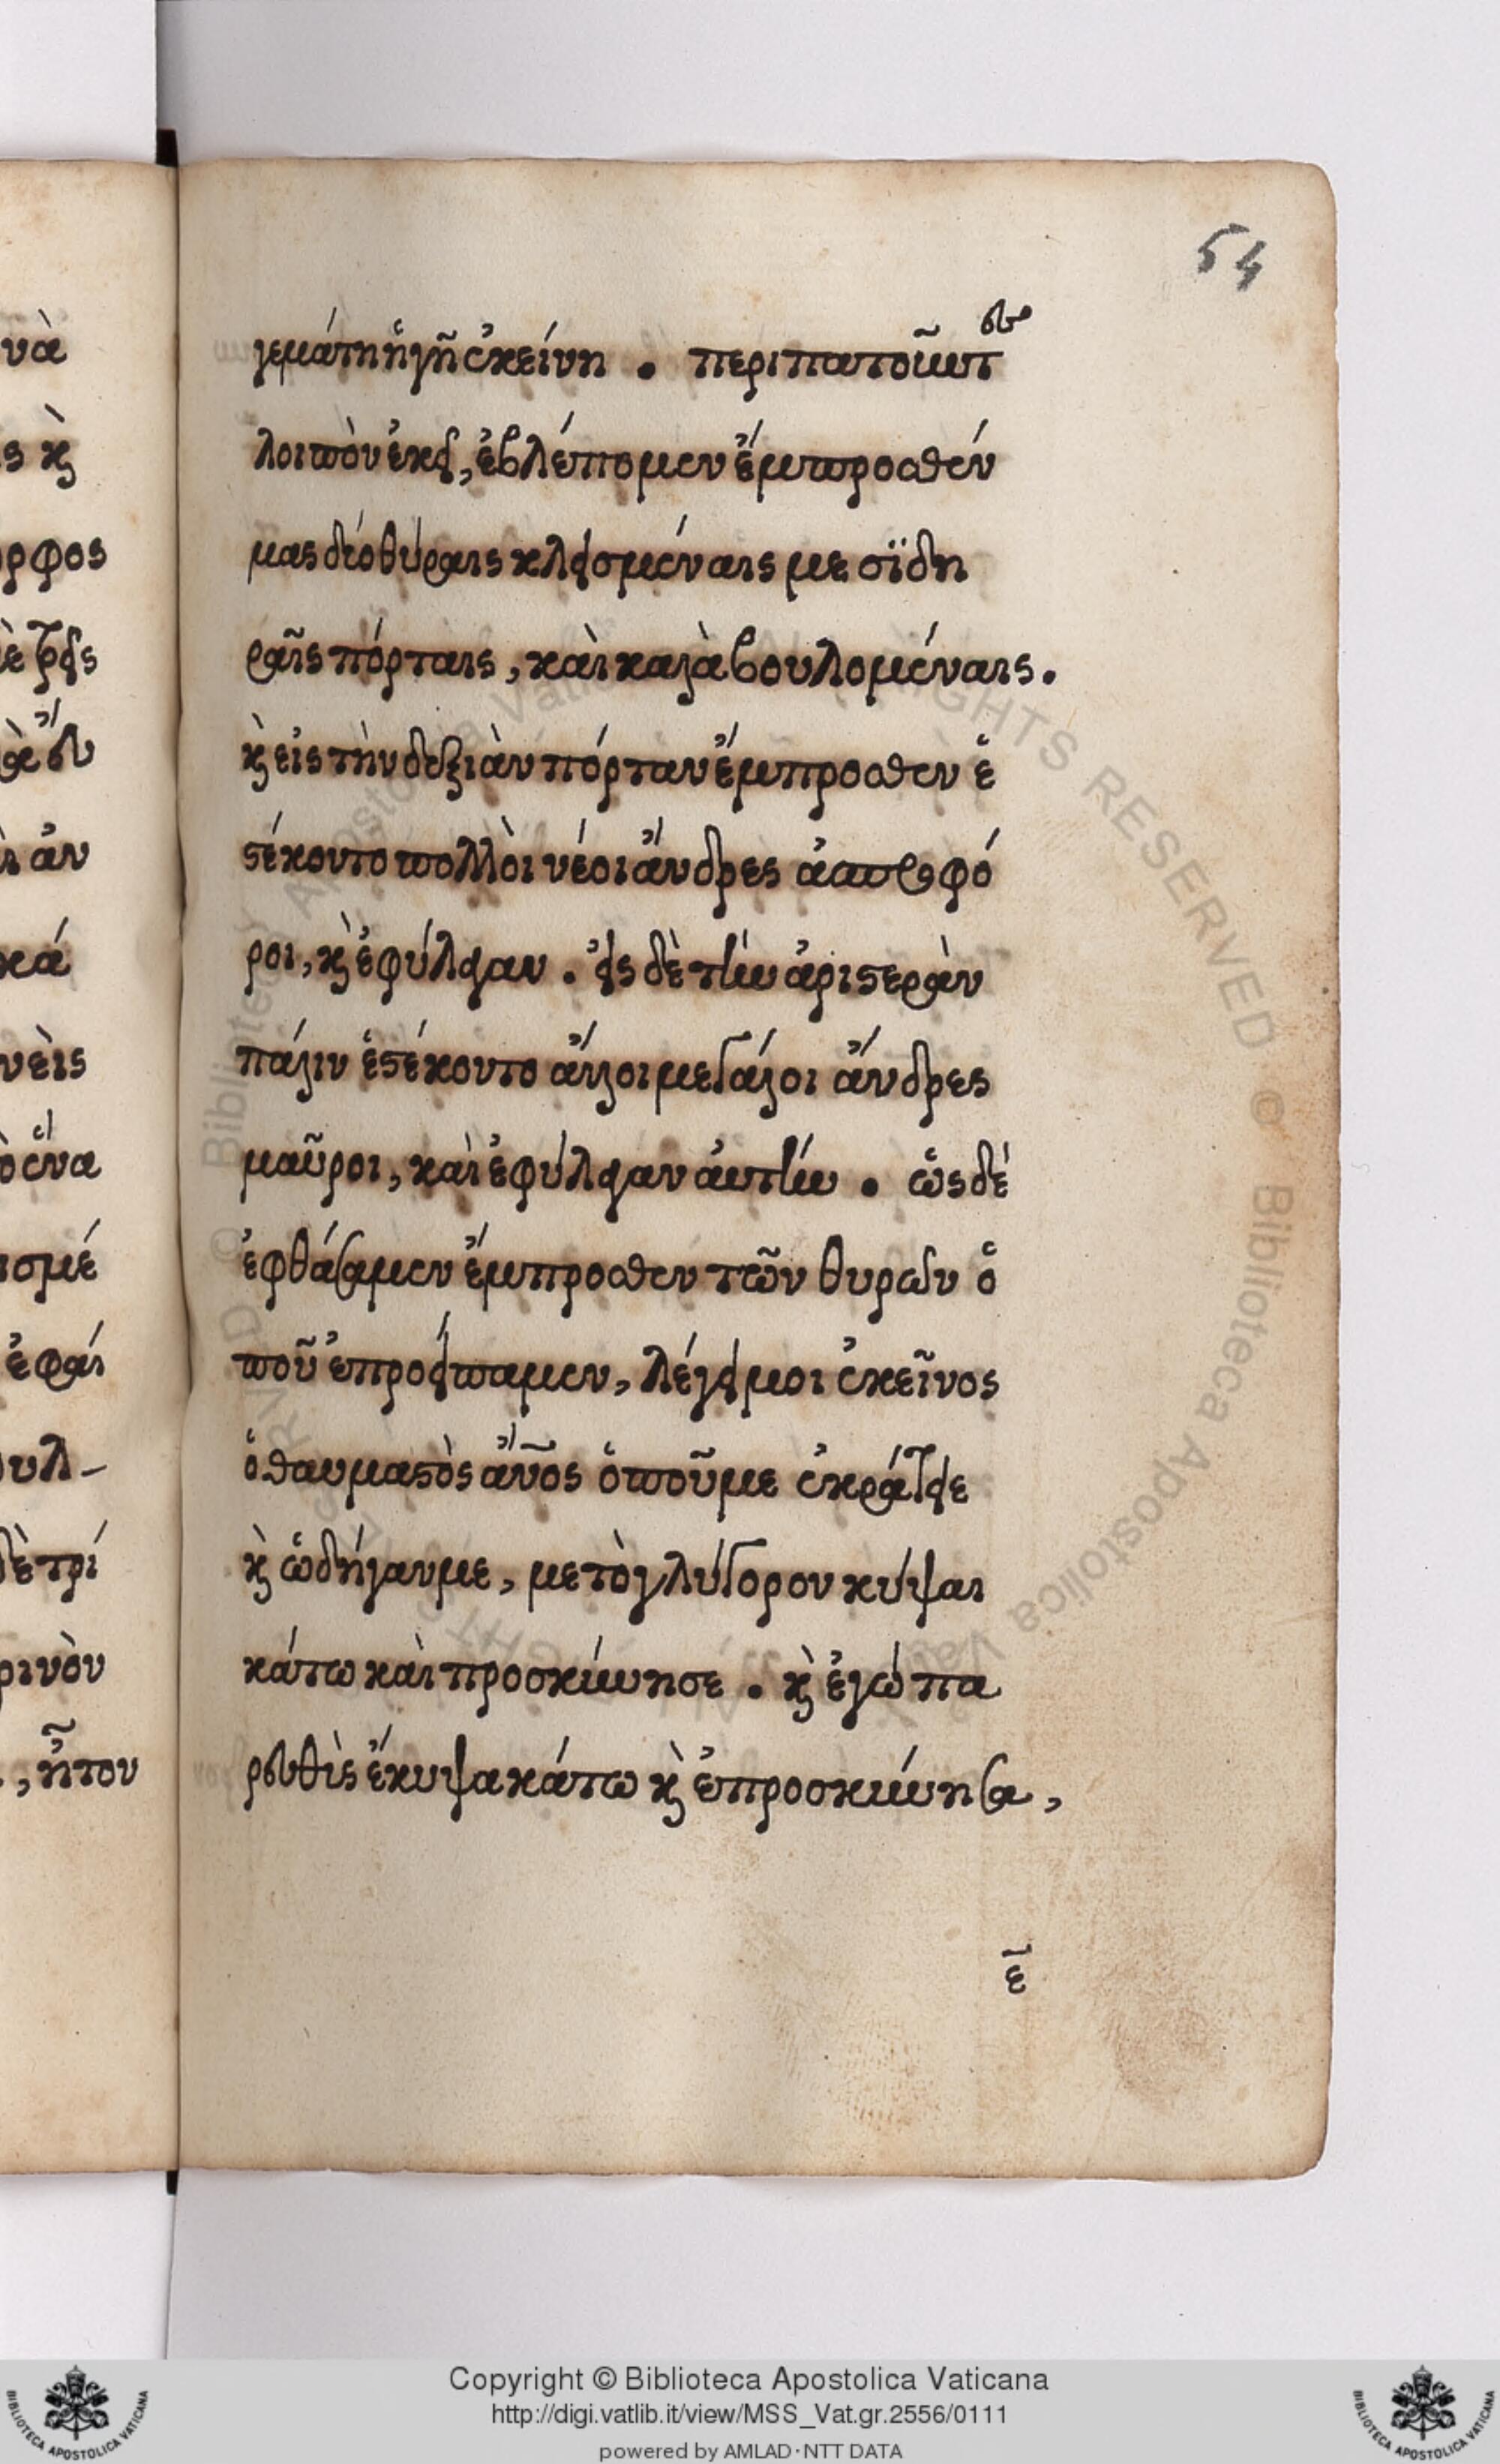 54
γεμάτη ἡ γῆ ἐκείνη . περιπατοῦντες
λοιπὸν ἐκεῖ, ἐβλέπομεν ἔμπροσθέν
μας δύο θύραις κλεισμέναις με σϊδη
ραῖς πόρταις, καὶ καλὰ βουλομέναις.
κ̀ εἰς τὴν δεξιὰν πόρταν ἔμπροσθεν ἐ
στέκοντο πολλοὶ νέοι ἄνδρες ἀσπροφό
ροι, κ̀ ἐφύλγαν . εἰς δὲ τὴν ἀριστερὰν
πάλιν ἐστέκοντο ἄλλοι μεγάλοι ἄνδρες
μαῦροι, καὶ ἐφύλγαν ἀυτὴν . ὡς δὲ
ἐφθάσαμεν ἔμπροσθεν τῶν θυρῶν ὁ
ποῦ ἐπροείπαμεν, λέγει μοι ἐκεῖνος
ὁ θαυμαστὸς ἄν̅ος ὁποῦ με ἐκράτειε
κ̀ ὡδήγαν με, με τὸ γλύγορον κύψαι
κάτω καὶ προσκύνησε . κ̀ ἐγώ πα
ρευθὶς ἔκυψα κάτω κ̀ ἐπροσκύνησα,
ε̅
νὰ
ς κ̀
ρφος
ἀν
κά
νεὶς
ἕνα
σμέ
ἐφαί
ουλ-
δὲ τρί
ρινὸν
, ἦτον
Copyright © Biblioteca Apostolica Vaticana
http://digi.vatlib.it/view/MSS_Vat.gr.2556/0111
powered by AMLAD·NTT DATA